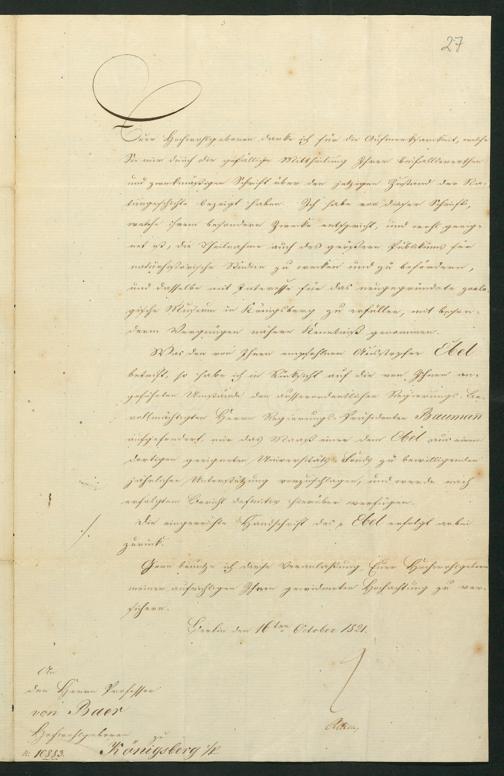 27
Euer Hochwohlgeboren danke ich für die Aufmerksamkeit, welche
Sie mir durch die gefällige Mittheilung Ihrer beifallswerthen
und zweckmäßigen Schrift über den jetzigen Zustand der Na-
turgeschichte bezeigt haben. Ich habe von dieser Schrift,
welche ihrem besondern Zwecke entspricht, und recht geeig-
net ist, die Theilnahme auch des größern Publikums für
naturhistorische Studien zu wecken und zu befördern,
und dasselbe mit Interesse für das neugegründete zoolo-
gische Museum in Königsberg zu erfüllen, mit beson-
derm Vergnügen nähere Kenntniß genommen.
Was den von Ihnen empfohlnen Ausstopfer Ebel
betrifft, so habe ich in Rücksicht auf die von Ihnen an-
geführten Umstände den außerordentlichen Regierungs-Be-
vollmächtigten Herrn Regierungs-Präsidenten Baumann
aufgefordert, mir das Maaß einer dem Ebel aus einem
dortigen geeigneten Universitäts-Fonds zu bewilligenden
jährlichen Unterstützung vorzuschlagen, und werde nach
erfolgtem Bericht definitiv hierüber verfügen.
Die eingereichte Handschrift des p Ebel erfolgt anbei
zurück.
Gern benutze ich diese Veranlassung, Euer Hochwohlgeboren
meiner aufrichtigen Ihnen gewidmeten Hochachtung zu ver-
sichern.
Berlin den 16ten October 1821.
An
den Herrn Professor
von Baer
Hochwohlgeboren
zu
Königsberg i/P.
N. 10883.